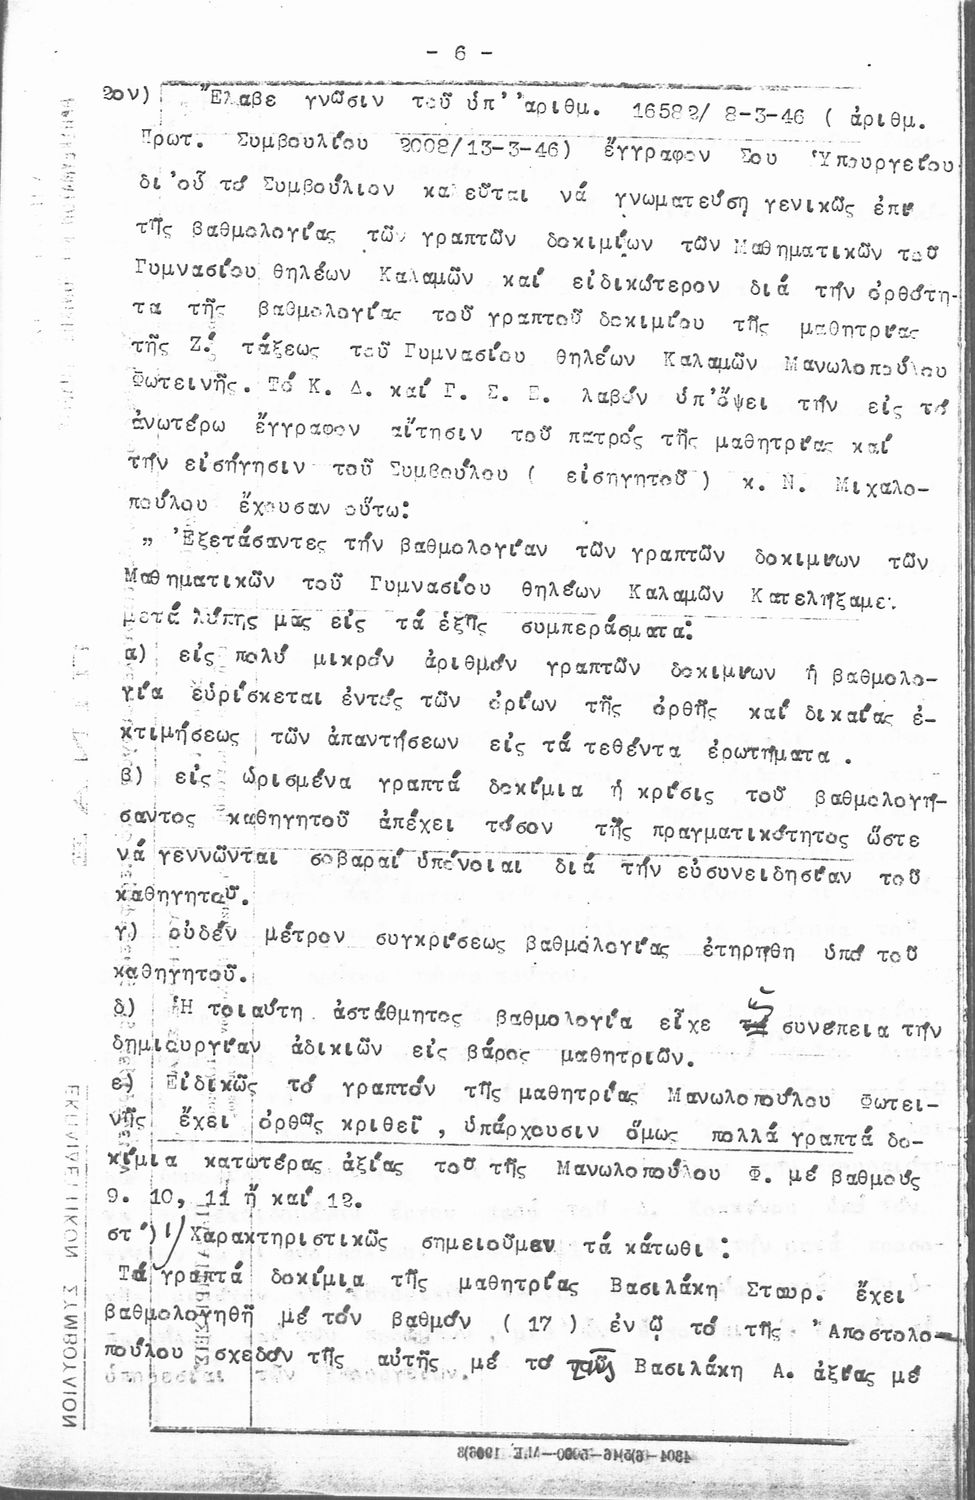 - 6 -
2ον) Ἔλαβε γνῶσιν τοῦ ὑπ' ἀριθμ. 16582/ 8-3-46 ( ἀριθμ.
Πρωτ. Συμβουλίου 2008/13-3-46) ἔγγραφον Σου Ὑπουργείου
δι' οὗ τό Συμβούλιον καλεῖται νά γνωματεύσῃ γενικῶς ἐπί
τῆς βαθμολογίας τῶν γραπτῶν δοκιμίων τῶν Μαθηματικῶν τοῦ
Γυμνασίου θηλέων Καλαμῶν καί εἰδικώτερον διά τήν ὀρθότη-
τα τῆς βαθμολογίας τοῦ γραπτοῦ δοκιμίου τῆς μαθητρίας
τῆς Ζ! τάξεως τοῦ Γυμνασίου θηλέων Καλαμῶν Μανωλοπούλου
Φωτεινῆς. Τό Κ. Δ. καί Γ. Σ. Ε. λαβόν ὑπ'ὄψει τήν εἰς τό
ἀνωτέρω ἔγγραφον αἴτησιν τοῦ πατρός τῆς μαθητρίας καί
τήν εἰσήγησιν τοῦ Συμβούλου ( εἰσηγητοῦ ) κ. Ν. Μιχαλο-
πούλου ἔχουσαν οὕτω:
„ Ἐξετάσαντες τήν βαθμολογίαν τῶν γραπτῶν δοκιμίων τῶν
Μαθηματικῶν τοῦ Γυμνασίου θηλέων Καλαμῶν Κατελήξαμε.
μετά λύπης μας εἰς τά ἑξῆς συμπεράσματα:
α) εἰς πολύ μικρόν ἀριθμόν γραπτῶν δοκιμίων ἡ βαθμολο-
γία εὑρίσκεται ἐντός τῶν ὁρίων τῆς ὀρθῆς καί δικαίας ἐ-
κτιμήσεως τῶν ἀπαντήσεων εἰς τά τεθέντα ἐρωτήματα .
β) εἰς ὡρισμένα γραπτά δοκίμια ἡ κρίσις τοῦ βαθμολογή-
σαντος καθηγητοῦ ἀπέχει τόσον τῆς πραγματικότητος ὥστε
νά γεννῶνται σοβαραί ὑπόνοιαι διά τήν εὐσυνειδησίαν τοῦ
καθηγητοῦ.
γ) οὐδέν μέτρον συγκρίσεως βαθμολογίας ἐτηρήθη ὑπό τοῦ
καθηγητοῦ.
δ) Ἡ τοιαύτη ἀστάθμητος βαθμολογία εἶχε ὡς συνέπεια τήν
δημιουργίαν ἀδικιῶν εἰς βάρος μαθητριῶν.
ε) Εἰδικῶς τό γραπτόν τῆς μαθητρίας Μανωλοπούλου Φωτει-
νῆς ἔχει ὀρθῶς κριθεῖ , ὑπάρχουσιν ὅμως πολλά γραπτά δο-
κίμια κατωτέρας ἀξίας τοῦ τῆς Μανωλοπούλου Φ. μέ βαθμούς
9. 10, 11 ἤ καί 12.
στ') Χαρακτηριστικῶς σημειοῦμεν τά κάτωθι :
Τά γραπτά δοκίμια τῆς μαθητρίας Βασιλάκη Σταυρ. ἔχει
βαθμολογηθῆ μέ τόν βαθμόν ( 17 ) ἐν ᾧ τό τῆς Ἀποστολο-
πούλου σχεδόν τῆς αὐτῆς μέ τό τῆς Βασιλάκη Α. ἀξίας μέ
ΕΚΠΑΙΔΕΥΤΙΚΟΝ ΣΥΜΒΟΥΛΙΟΝ